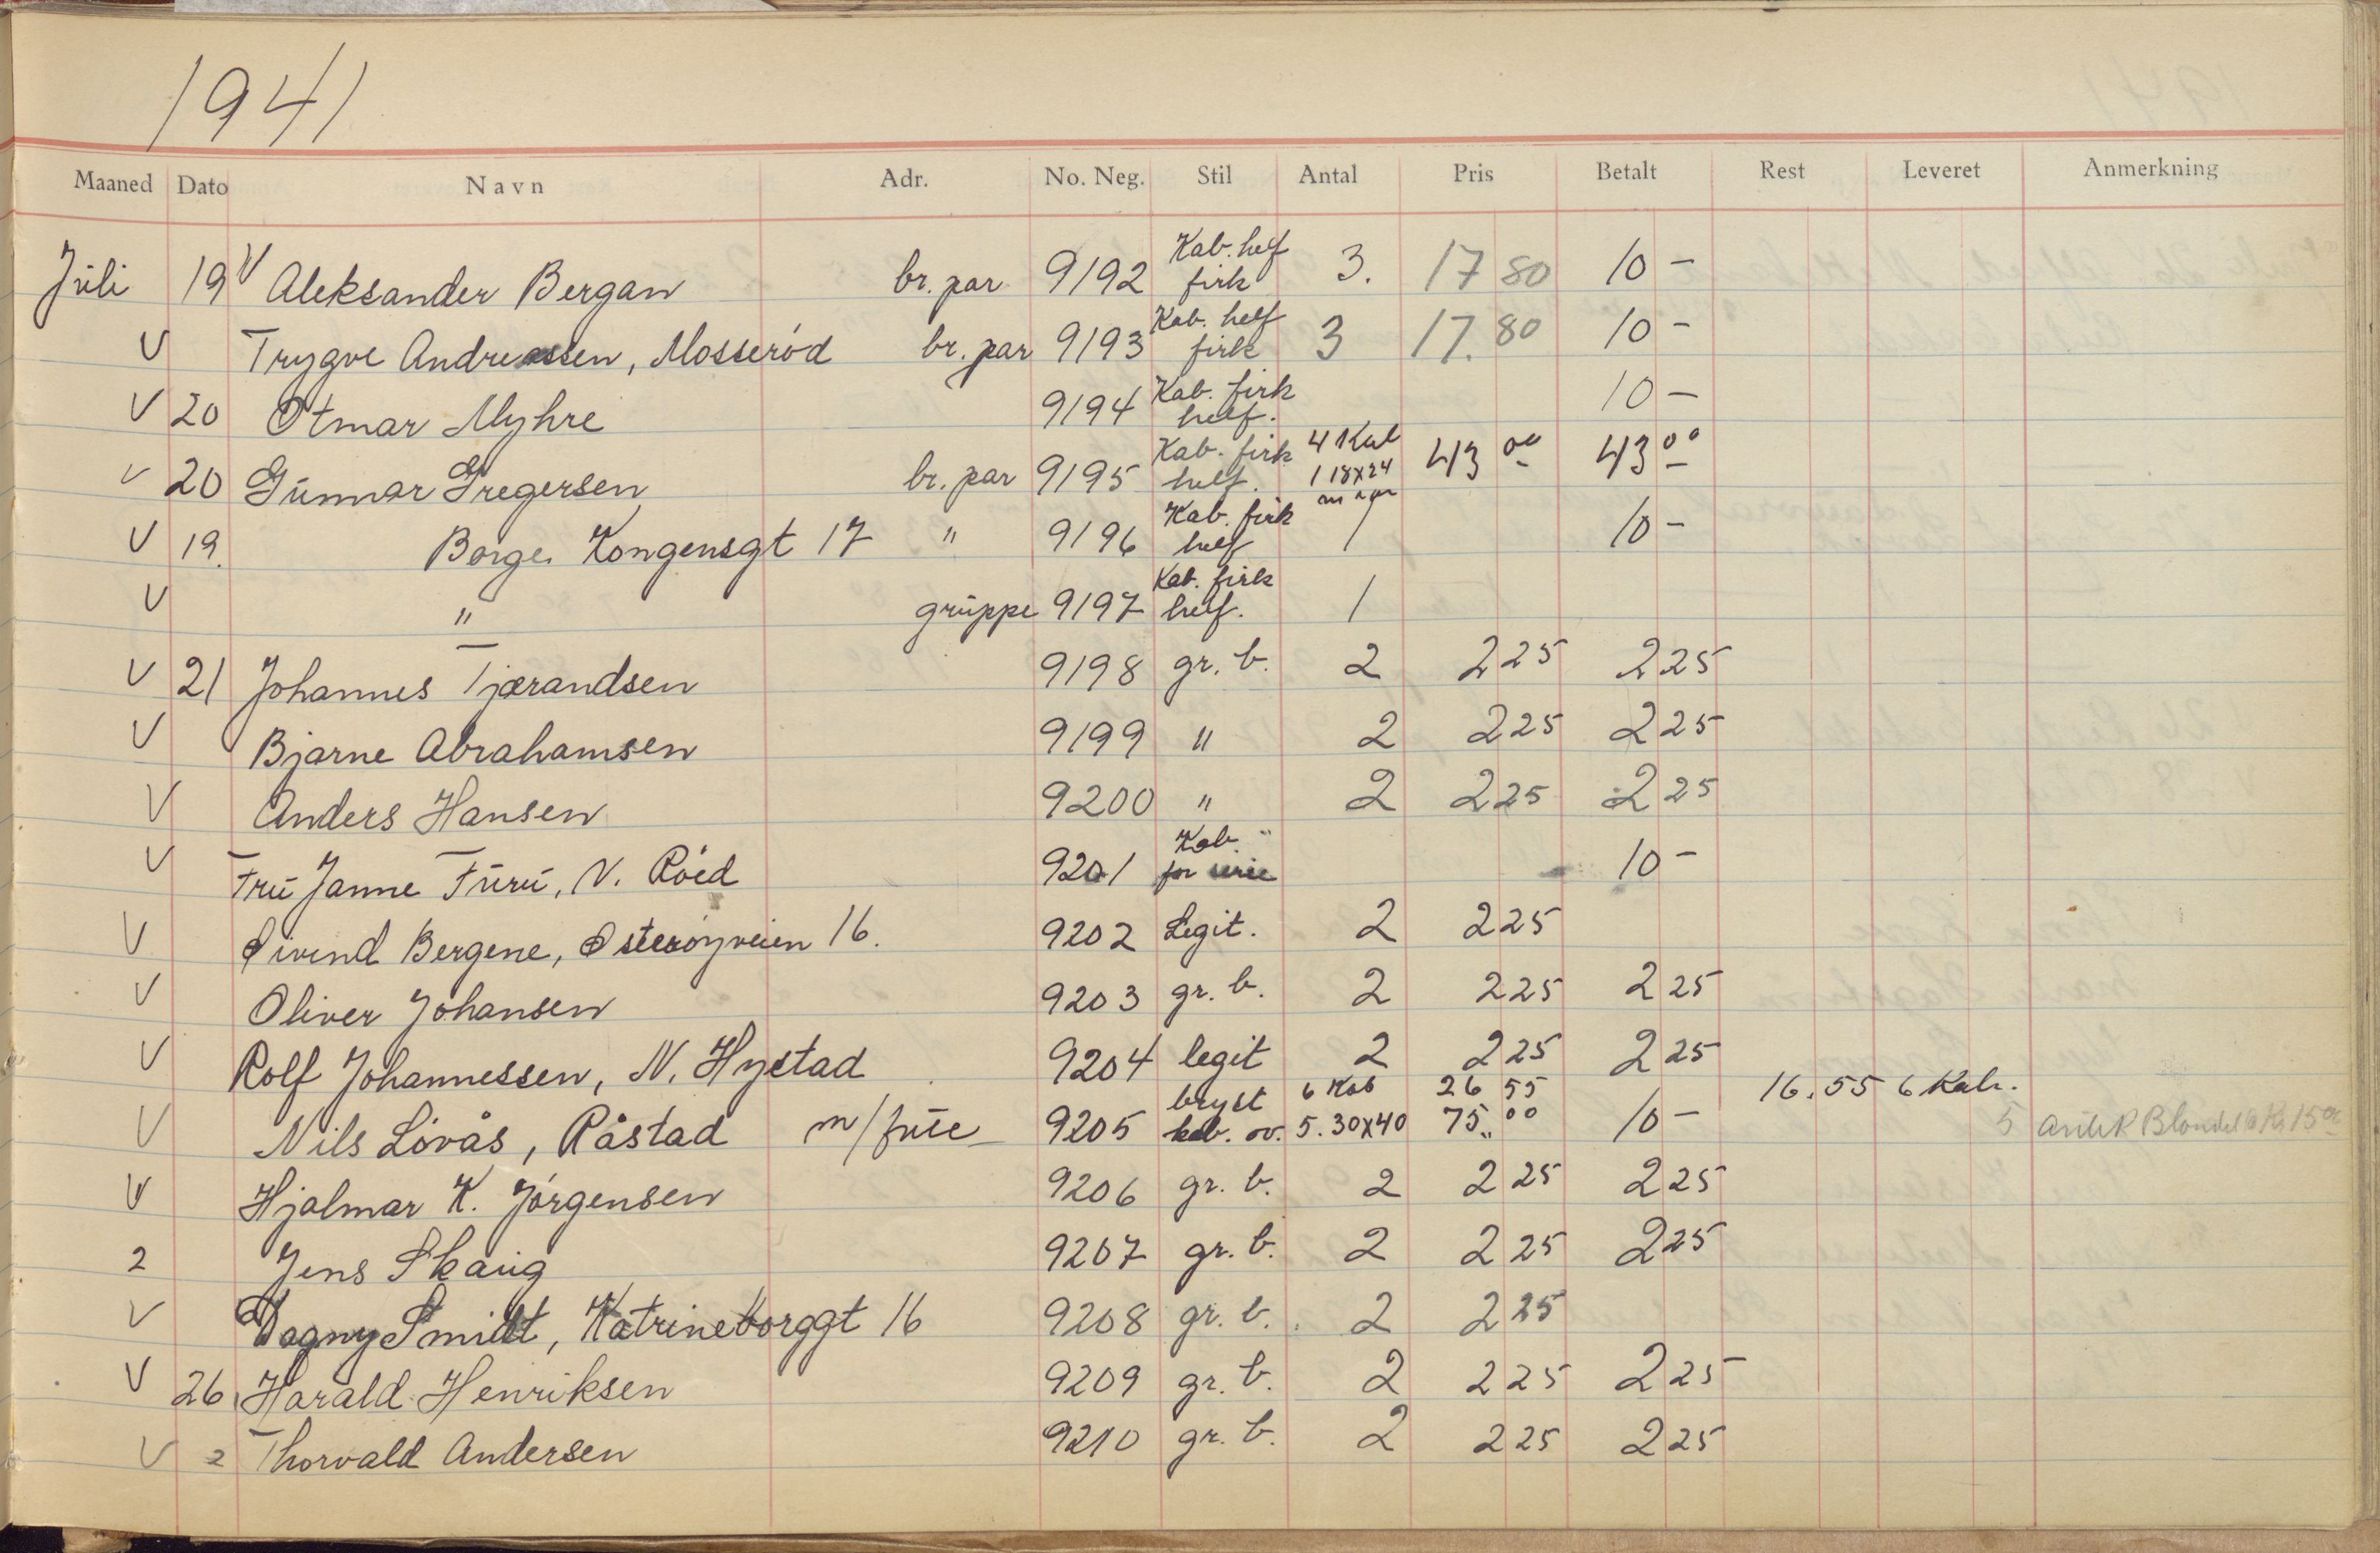 1941
Maaned Dato Navn Adr. No. Neg. Stil Antal Pris Betalt Rest Leveret Anmerkning
Juli 19 V Aleksander Bergan br. par 9192 Kab. helf firk 3. 17 80 10 -
V Trygve Andreassen, Mosserød br. par 9193 Kab. helf firk 3 17. 80 10 -
V 20 Otmar Myhre 9194 Kab. firk helf. 10 -
V 20 Gunnar Gregersen br. par 9195 Kab. firk helf. 4 Kab 1 18x24 43 00 43 00
V 19. Borge. Kongensgt 17 " 9196 Kab. firk helf 1 10 -
V " gruppe 9197 Kab. firk helf. 1
V 21 Johannes Tjærandsen 9198 gr. b. 2 2 25 2 25
V Bjarne Abrahamsen 9199 " 2 2 25 2 25
V Anders Hansen 9200 " 2 2 25 2 25
V Fru Janne Furu, N. Röed 9201 Kab. for 10 -
V Øivind Bergene, Osterøyveien 16. 9202 Legit. 2 2 25
V Oliver Johansen 9203 gr. b. 2 2 25 2 25
V Rolf Johannessen, N. Hystad 9204 legit 2 2 25 2 25
V Nils Lövås, Råstad m/frue 9205 bryst kab. ov. 6 Kab 5. 30x40 26 55 75 00 10 - 16.55 6 Kab. 5
V Hjalmar K. Jörgensen 9206 gr. b. 2 2 25 2 25
2 Jens Skaug 9207 gr. b. 2 2 25 2 25
V Dagny Smidt, Katrineborggt 16 9208 gr. b. 2 2 25
V 26 Harald Henriksen 9209 gr. b. 2 2 25 2 25
V 2 Thorvald Andersen 9210 gr. b. 2 2 25 2 25